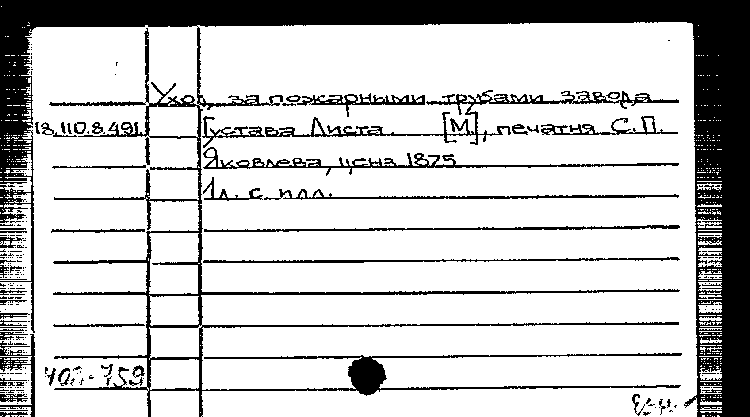 Уход за пожарными трубами завода
18.110.8.491. Густава Листа. [М], печатня С.П.
Яковлева, ценз 1875
1л. с илл.